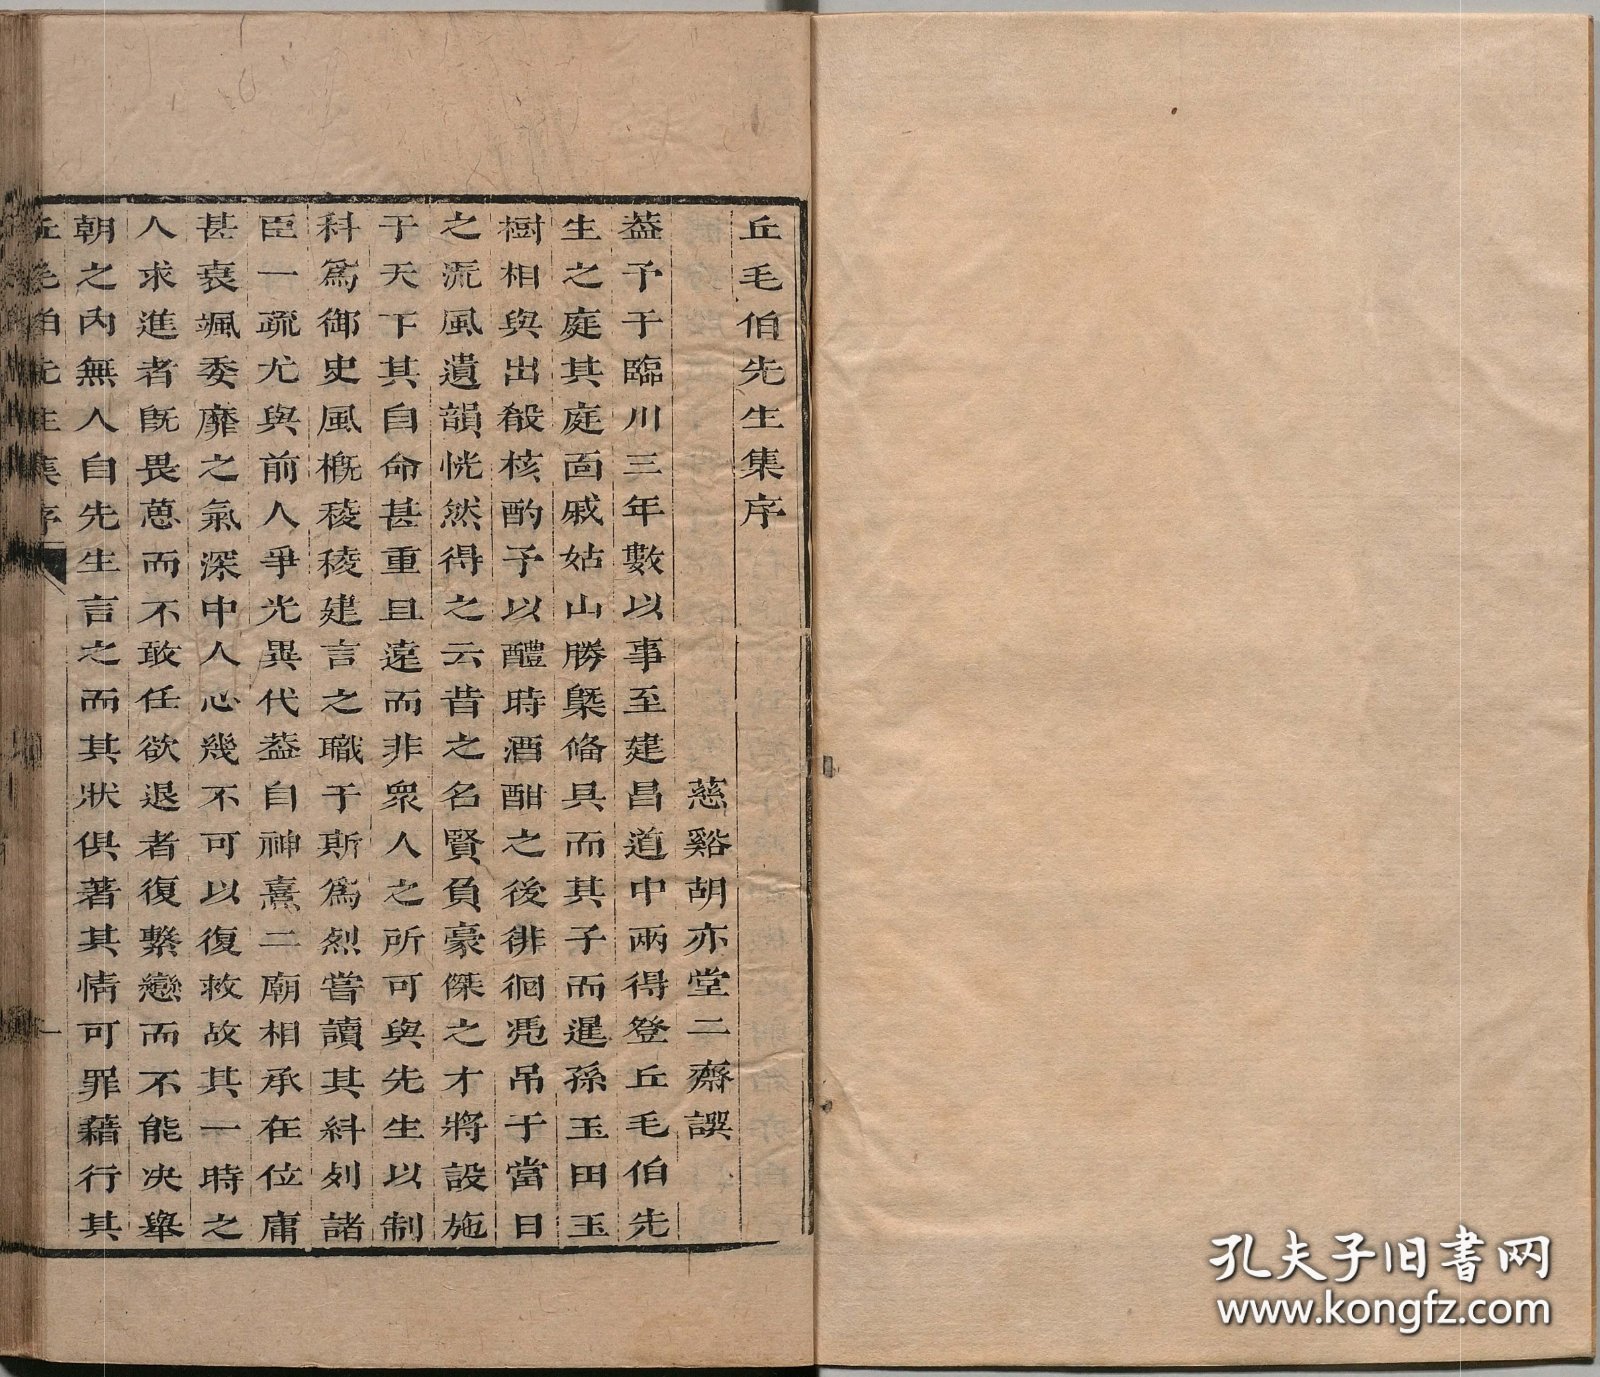 丘毛伯先生集序
慈谿胡亦堂二齋譔
葢予于臨川三年數以事至建昌道中兩得登丘毛伯先
生之庭其庭面戚姑山勝槩偹具而其子而暹孫玉田玉
樹相與出殽核酌予以醴時酒酣之後徘徊凭吊于當日
之流風遺韻恍然得之云昔之名賢負豪傑之才將設施
于天下其自命甚重且遠而非衆人之所可與先生以制
科爲御史風槪稜稜建言之職于斯爲烈嘗讀其糾劾諸
臣一疏尤與前人爭光異代葢自神熹二廟相承在位庸
甚衰颯委靡之氣深中人心幾不可以復救故其一時之
人求進者旣畏葸而不敢任欲退者復繫戀而不能决舉
朝之內無人自先生言之而其狀俱著其情可罪藉行其
丘毛伯先生集序
一
孔夫子旧书网
www.kongfz.com